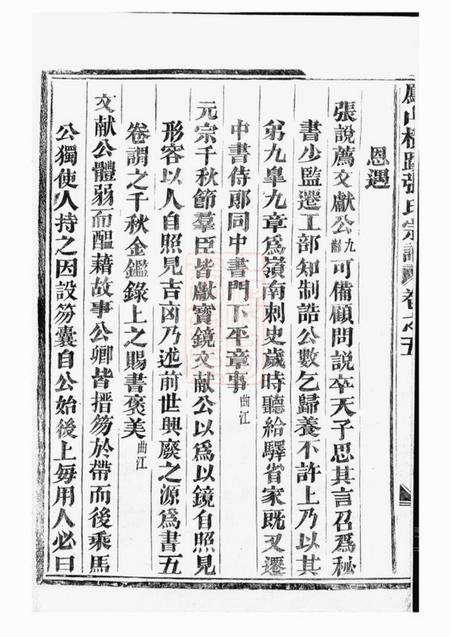 恩遇
張說薦文獻公九齡可備顧問說卒天子思其言召爲秘
書少監遷工部知制誥公數乞歸養不許上乃以其
弟九皐九章爲嶺南刺史歲時聽給驛省家既又遷
中書侍郎同中書門下平章事曲江
元宗千秋節羣臣皆獻寶鏡文獻公以爲以鏡自照見
形容以人自照見吉凶乃述前世興廢之源爲書五
卷謂之千秋金鑑錄上之賜書褒美曲江
文献公體弱而醖藉故事公卿皆搢笏於帶而後乘馬
公獨使人持之因設笏囊自公始後上每用人必曰
張氏宗譜 卷之五